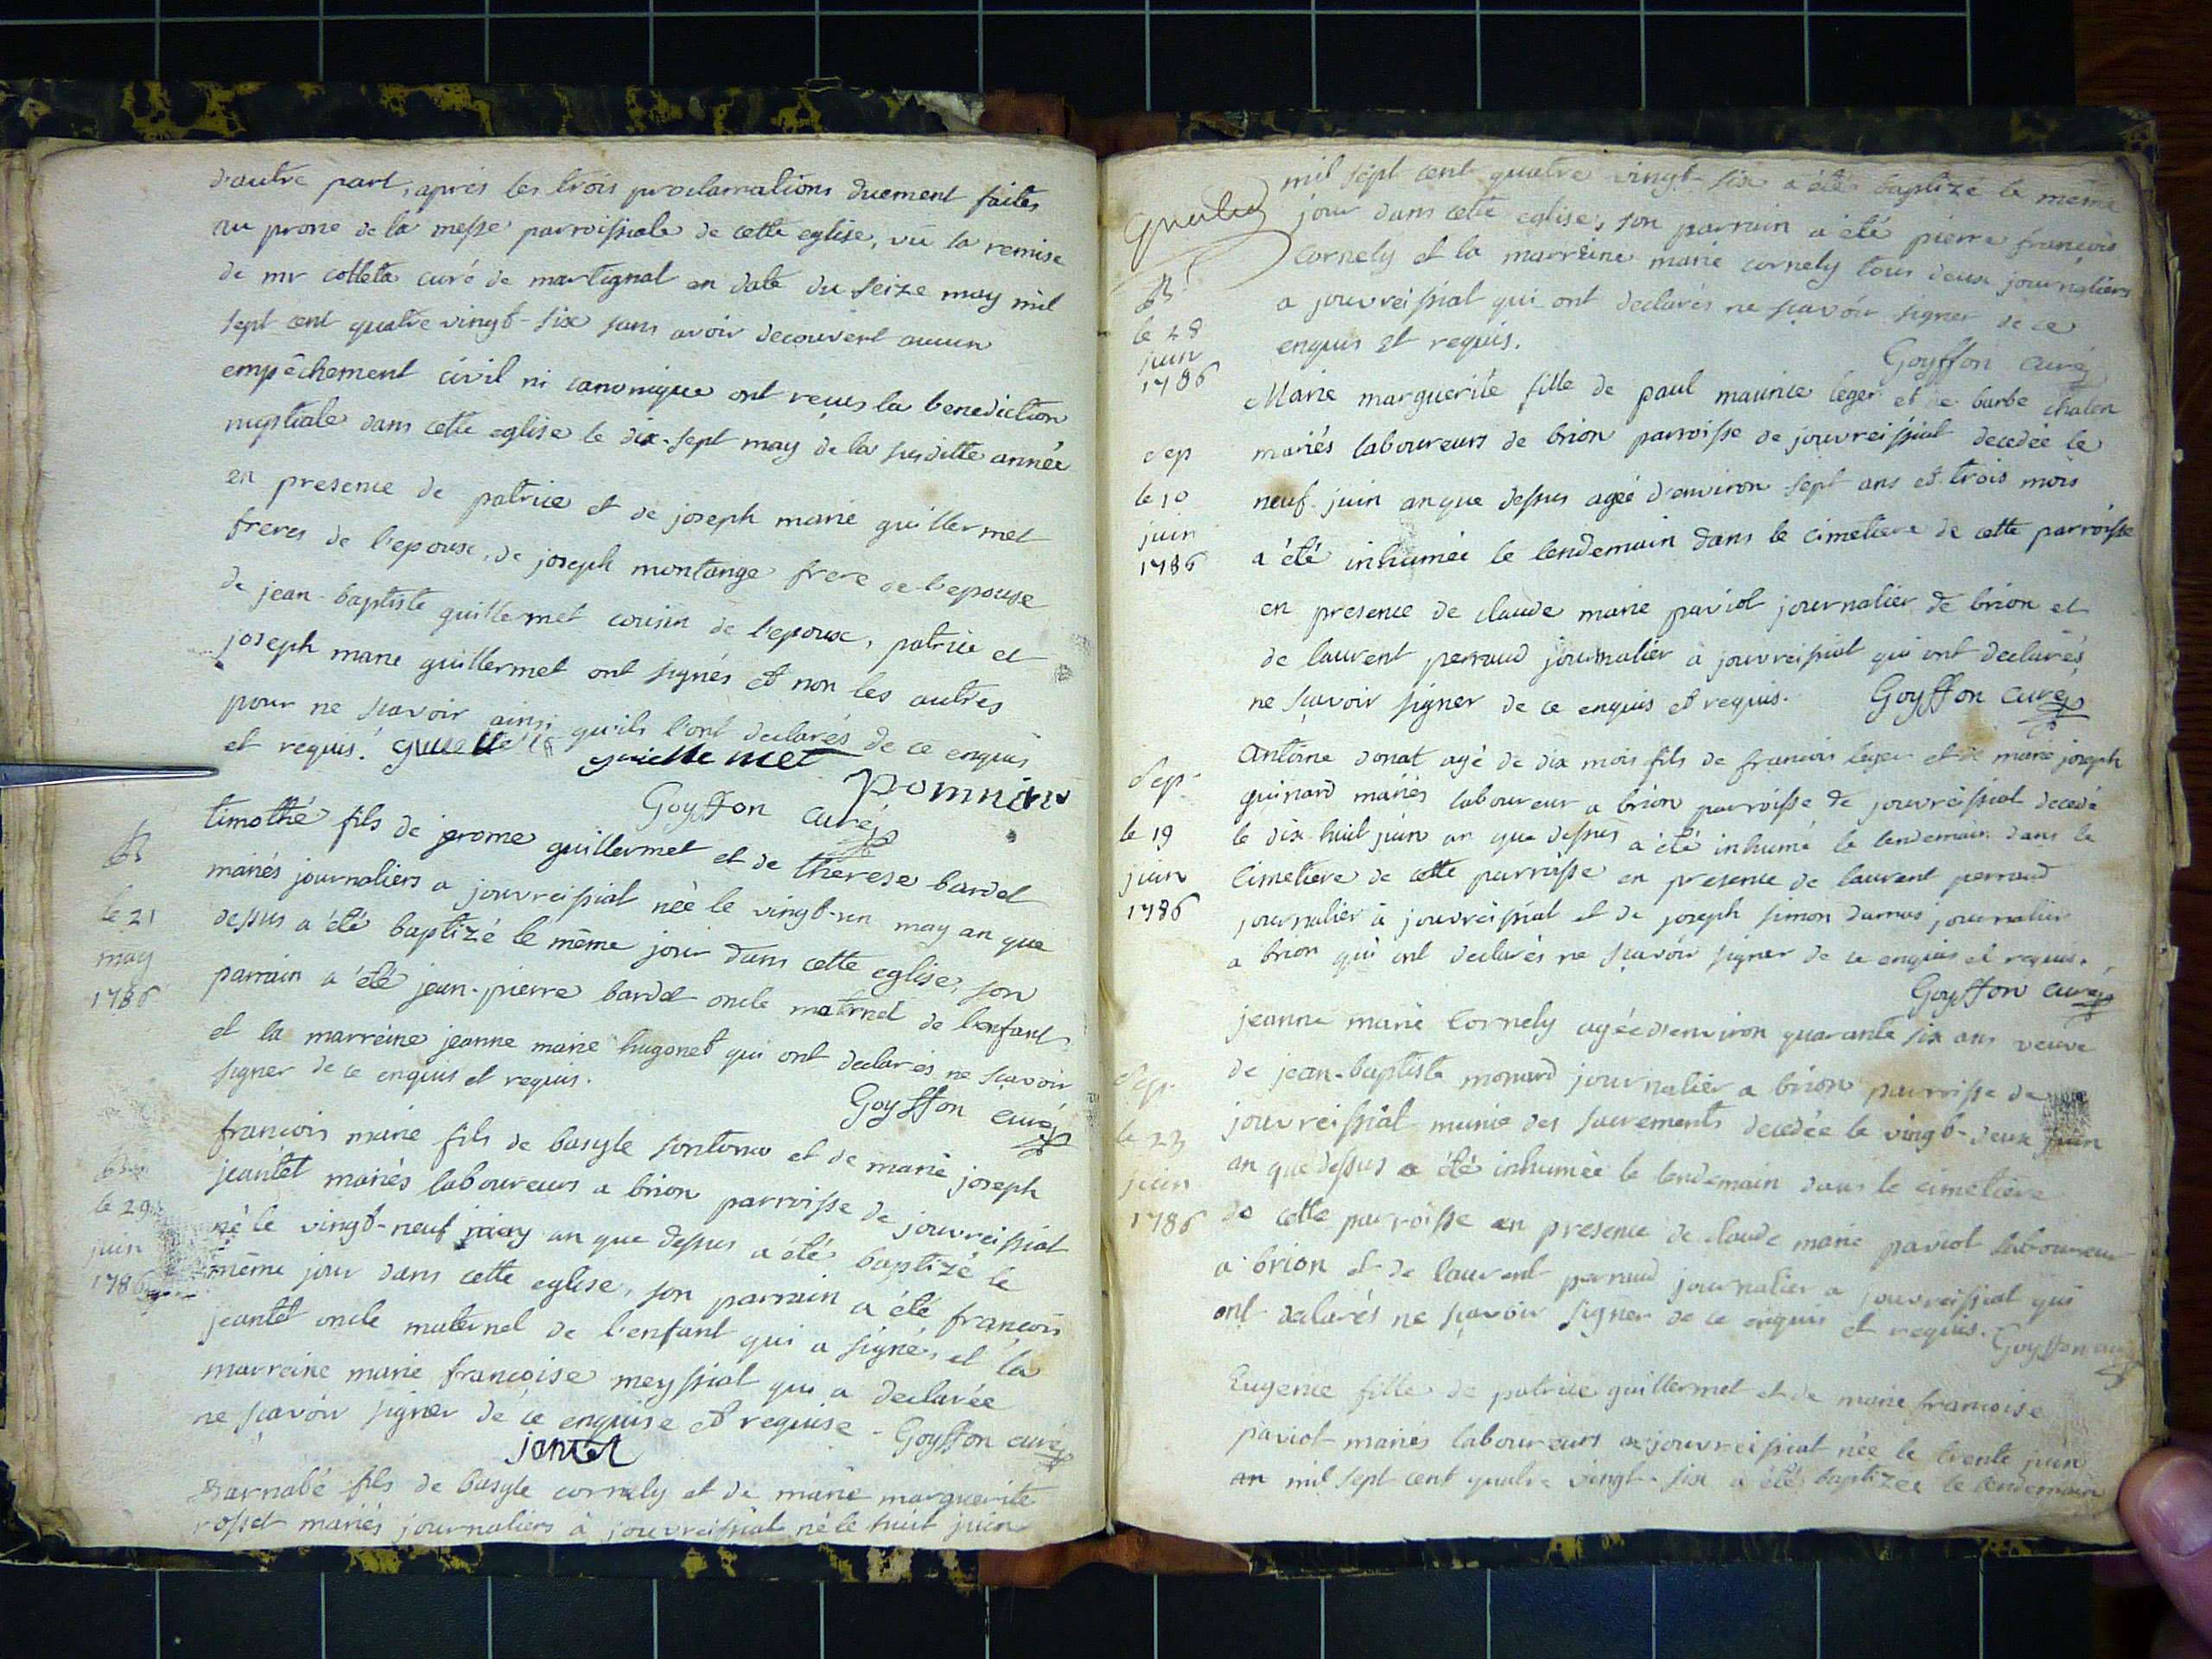 d'autre part, après les trois proclamations duement faites
au prone de la messe parroissiale de cette eglise, vû la remise
de mr colleta curé de martignat en date du seize may mil
sept cent quatre vingt-six sans avoir decouvert aucun
empêchement civil ni canonique ont reçus la benediction
nuptiale dans cette eglise le dix-sept may de la susditte année
en presence de patrice et de joseph marie guillermet
freres de l'epouse, de joseph montange frere de l'epouse
de jean-baptiste guillermet cousin de l'epoux, patrice et
joseph marie guillermet ont signés et non les autres
pour ne scavoir ainsi qu'ils l'ont declarés de ce enquis
et requis.
Goyffon curé
B
le 21
may
1786
timothé fils de jerome guillermet et de therese bardet
mariés journaliers a jouvreissiat né le vingt-un may an que
dessus a été baptizé le même jour dans cette eglise, son
parrain a été jean-pierre bardet oncle maternel de l'enfant
et la marreine jeanne marie hugonet qui ont declarés ne scavoir
signer de ce enquis et requis.
Goyffon curé
le 29
juin
1786
francois marie fils de basyle sontonax et de marie joseph
jeantet mariés laboureurs a brion parroisse de jouvreissiat
né le vingt-neuf may an que dessus a été baptizé le
même jour dans cette eglise, son parrain a été francois
jeantet oncle maternel de l'enfant qui a signé, et la
marreine marie francoise meyssiat qui a declarée
ne scavoir signer de ce enquise et requise - Goyffon curé
jantet
Barnabé fils de basyle cornely et de marie marguerite
rosset mariés journaliers à jouvreissiat né le huit juin
mil sept cent quatre vingt-six a été baptizé le même
jour dans cette eglise, son parrain a été pierre francois
cornely et la marreine marie cornely tous deux journaliers
a jouvreissiat qui ont declarés ne scavoir signer de ce
enquis et requis.
Goyffon curé
B
le 28
juin
1786
Marie marguerite fille de paul maurice leger et de barbe chaton
mariés laboureurs de brion parroisse de jouvreissiat decedée le
neuf juin an que dessus ageé d'environ sept ans et trois mois
a été inhumée le lendemain dans le cimetiere de cette parroisse
en presence de claude marie paviot journalier de brion et
de laurent perraud journalier à jouvreissiat qui ont declarés
ne scavoir signer de ce enquis et requis. Goyffon curé
Sep
le 10
juin
1786
Antoine donat agé de dix mois fils de francois leger et de marie joseph
guinard mariés laboureur a brion parroisse de jouvreissiat decedé
le dix-huit juin an que dessus a été inhumé le lendemain dans le
cimetiere de cette parroisse en presence de laurent perraud
journalier à jouvreissiat et de joseph simon dumas journalier
a brion qui ont declarés ne scavoir signer de ce enquis et requis.
Goyffon curé
Sep.
le 19
juin
1786
jeanne marie Cornely ageé d'environ quarante six ans veuve
de jean-baptiste monard journalier a brion parroisse de
jouvreissiat munie des sacrements decedée le vingt-deux juin
an que dessus a été inhumée le lendemain dans le cimetiere
de cette parroisse en presence de claude marie paviot laboureur
a brion et de laurent perraud journalier a jouvreissiat qui
ont declarés ne scavoir signer de ce enquis et requis. Goyffon curé
Sep.
le 23
juin
1786
Eugenie fille de patrice guillermet et de marie francoise
paviot mariés laboureurs a jouvreissiat née le trente juin
an mil sept cent quatre vingt-six a été baptizée le lendemain